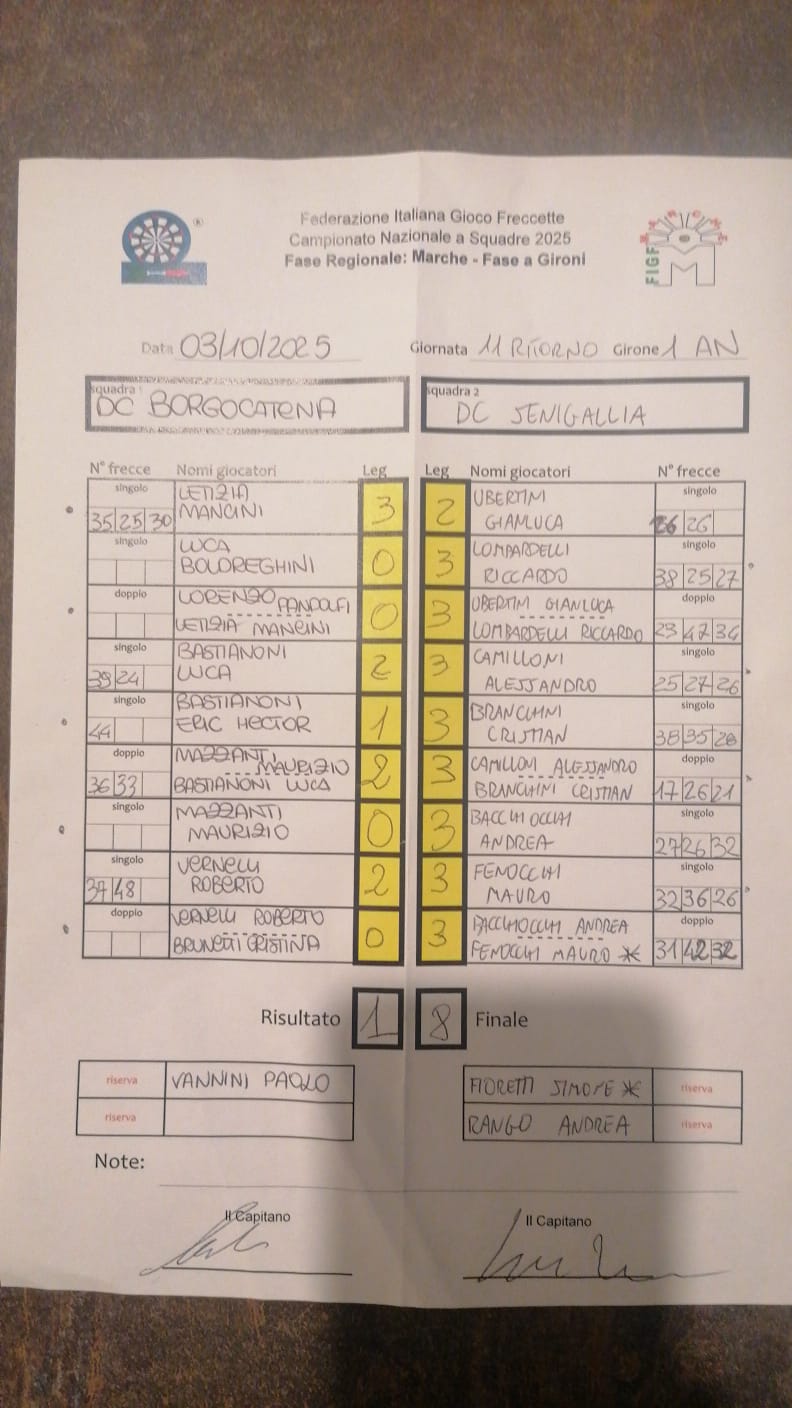 Federazione Italiana Gioco Freccette
Campionato Nazionale a Squadre 2025
Fase Regionale: Marche - Fase a Gironi
FIGF
M
Data 03/10/2025 Giornata 11 RITORNO Girone 1 AN
squadra 1
DC BORGOCATENA
squadra 2
DC SENIGALLIA
N° frecce Nomi giocatori Leg Leg Nomi giocatori N° frecce
singolo LETIZIA UBERTINI singolo
35 25 30 MANCINI 3 2 GIANLUCA 26 26
singolo LUCA LOMBARDELLI singolo
BOLDREGHINI 0 3 RICCARDO 38 25 27
doppio LORENZO PANDOLFI UBERTINI GIANLUCA doppio
LETIZIA MANCINI 0 3 LOMBARDELLI RICCARDO 23 47 34
singolo BASTIANONI CAMILLONI singolo
39 24 LUCA 2 3 ALESSANDRO 25 27 26
singolo BASTIANONI BRANCHINI singolo
44 ERIC HECTOR 1 3 CRISTIAN 38 35 28
doppio MAZZANTI MAURIZIO CAMILLONI ALESSANDRO doppio
36 33 BASTIANONI LUCA 2 3 BRANCHINI CRISTIAN 17 26 21
singolo MAZZANTI BACCHIOCCHI singolo
MAURIZIO 0 3 ANDREA 27 26 32
singolo VERNELLI FENOCCHI singolo
37 48 ROBERTO 2 3 MAURO 32 36 26
doppio VERNELLI ROBERTO BACCHIOCCHI ANDREA doppio
BRUNETTI CRISTINA 0 3 FENOCCHI MAURO * 31 42 32
Risultato 1 8 Finale
riserva VANNINI PAOLO FIORETTI SIMONE * riserva
riserva RANGO ANDREA riserva
Note:
Il Capitano Il Capitano